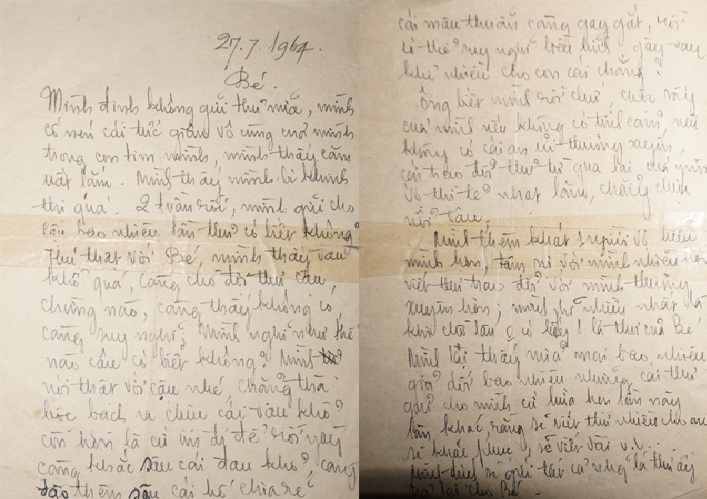 27.7.1964.
Bé.
Mình định không gửi thư nữa, mình
cố nén cái tức giận vô cùng của mình
trong con tim mình, mình thấy căm
uất lắm. Mình thấy mình bị khinh
thị quá. 2 tuần rồi, mình gửi cho
cậu bao nhiêu lần thư có biết không?
Thú thật với Bé, mình thấy đau
khổ quá, càng chờ đợi thư cậu,
chừng nào, càng thấy không có,
càng suy nghĩ. Mình nghĩ như thế
nào cậu có biết không? Mình
nói thật với cậu nhé chẳng thà
bộc bạch ra chịu cái đau khổ
còn hơn là cứ im đi để rồi ngày
càng khắc sâu cái đau khổ, càng
đào thêm sâu cái hố chia rẽ
cái mâu thuẫn càng gay gắt, rồi
có thể suy nghĩ biểu tình gây
khổ nhiều cho con cái chăng?
Ông biết mình rồi chứ, cuộc sống
của mình nếu không có tình cảm, nếu
không có cái an ủi thường xuyên,
cái trao đổi thư từ qua lại
vô thì tẻ nhạt lắm, chẳng chịu
nổi đâu.
Mình thèm khát 1 người vợ hiểu
mình hơn, tâm sự với mình nhiều
viết thư trao đổi với mình thường
xuyên hơn; mình nhiều nhất
khi chờ lâu lấy 1 lá thư của Bé
Mình lại thấy mỉa mai bao nhiêu
giả dối bao nhiêu những cái thư
gửi cho mình cứ hứa hẹn lần này
lần khác rằng sẽ viết thư nhiều cho anh
sẽ khắc phục, sẽ viết dài v.v...
Mình định sẽ gửi tất cả những lá thư ấy
trả lại cho Bé